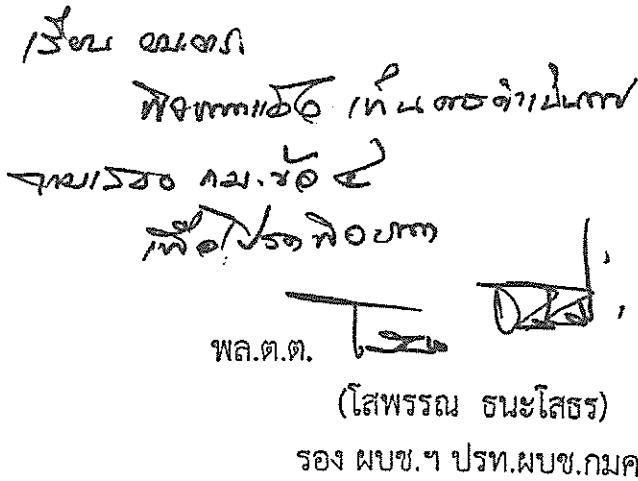 เรียน ผบ.ตร.
พิจารณาแล้ว เห็นควรดำเนินการ
ตามเสนอ กม. ข้อ ๔
เพื่อโปรดพิจารณา
พล.ต.ต.
(โสพรรณ ธนะโสธร)
รอง ผบช.ฯ ปรท.ผบช.กมค